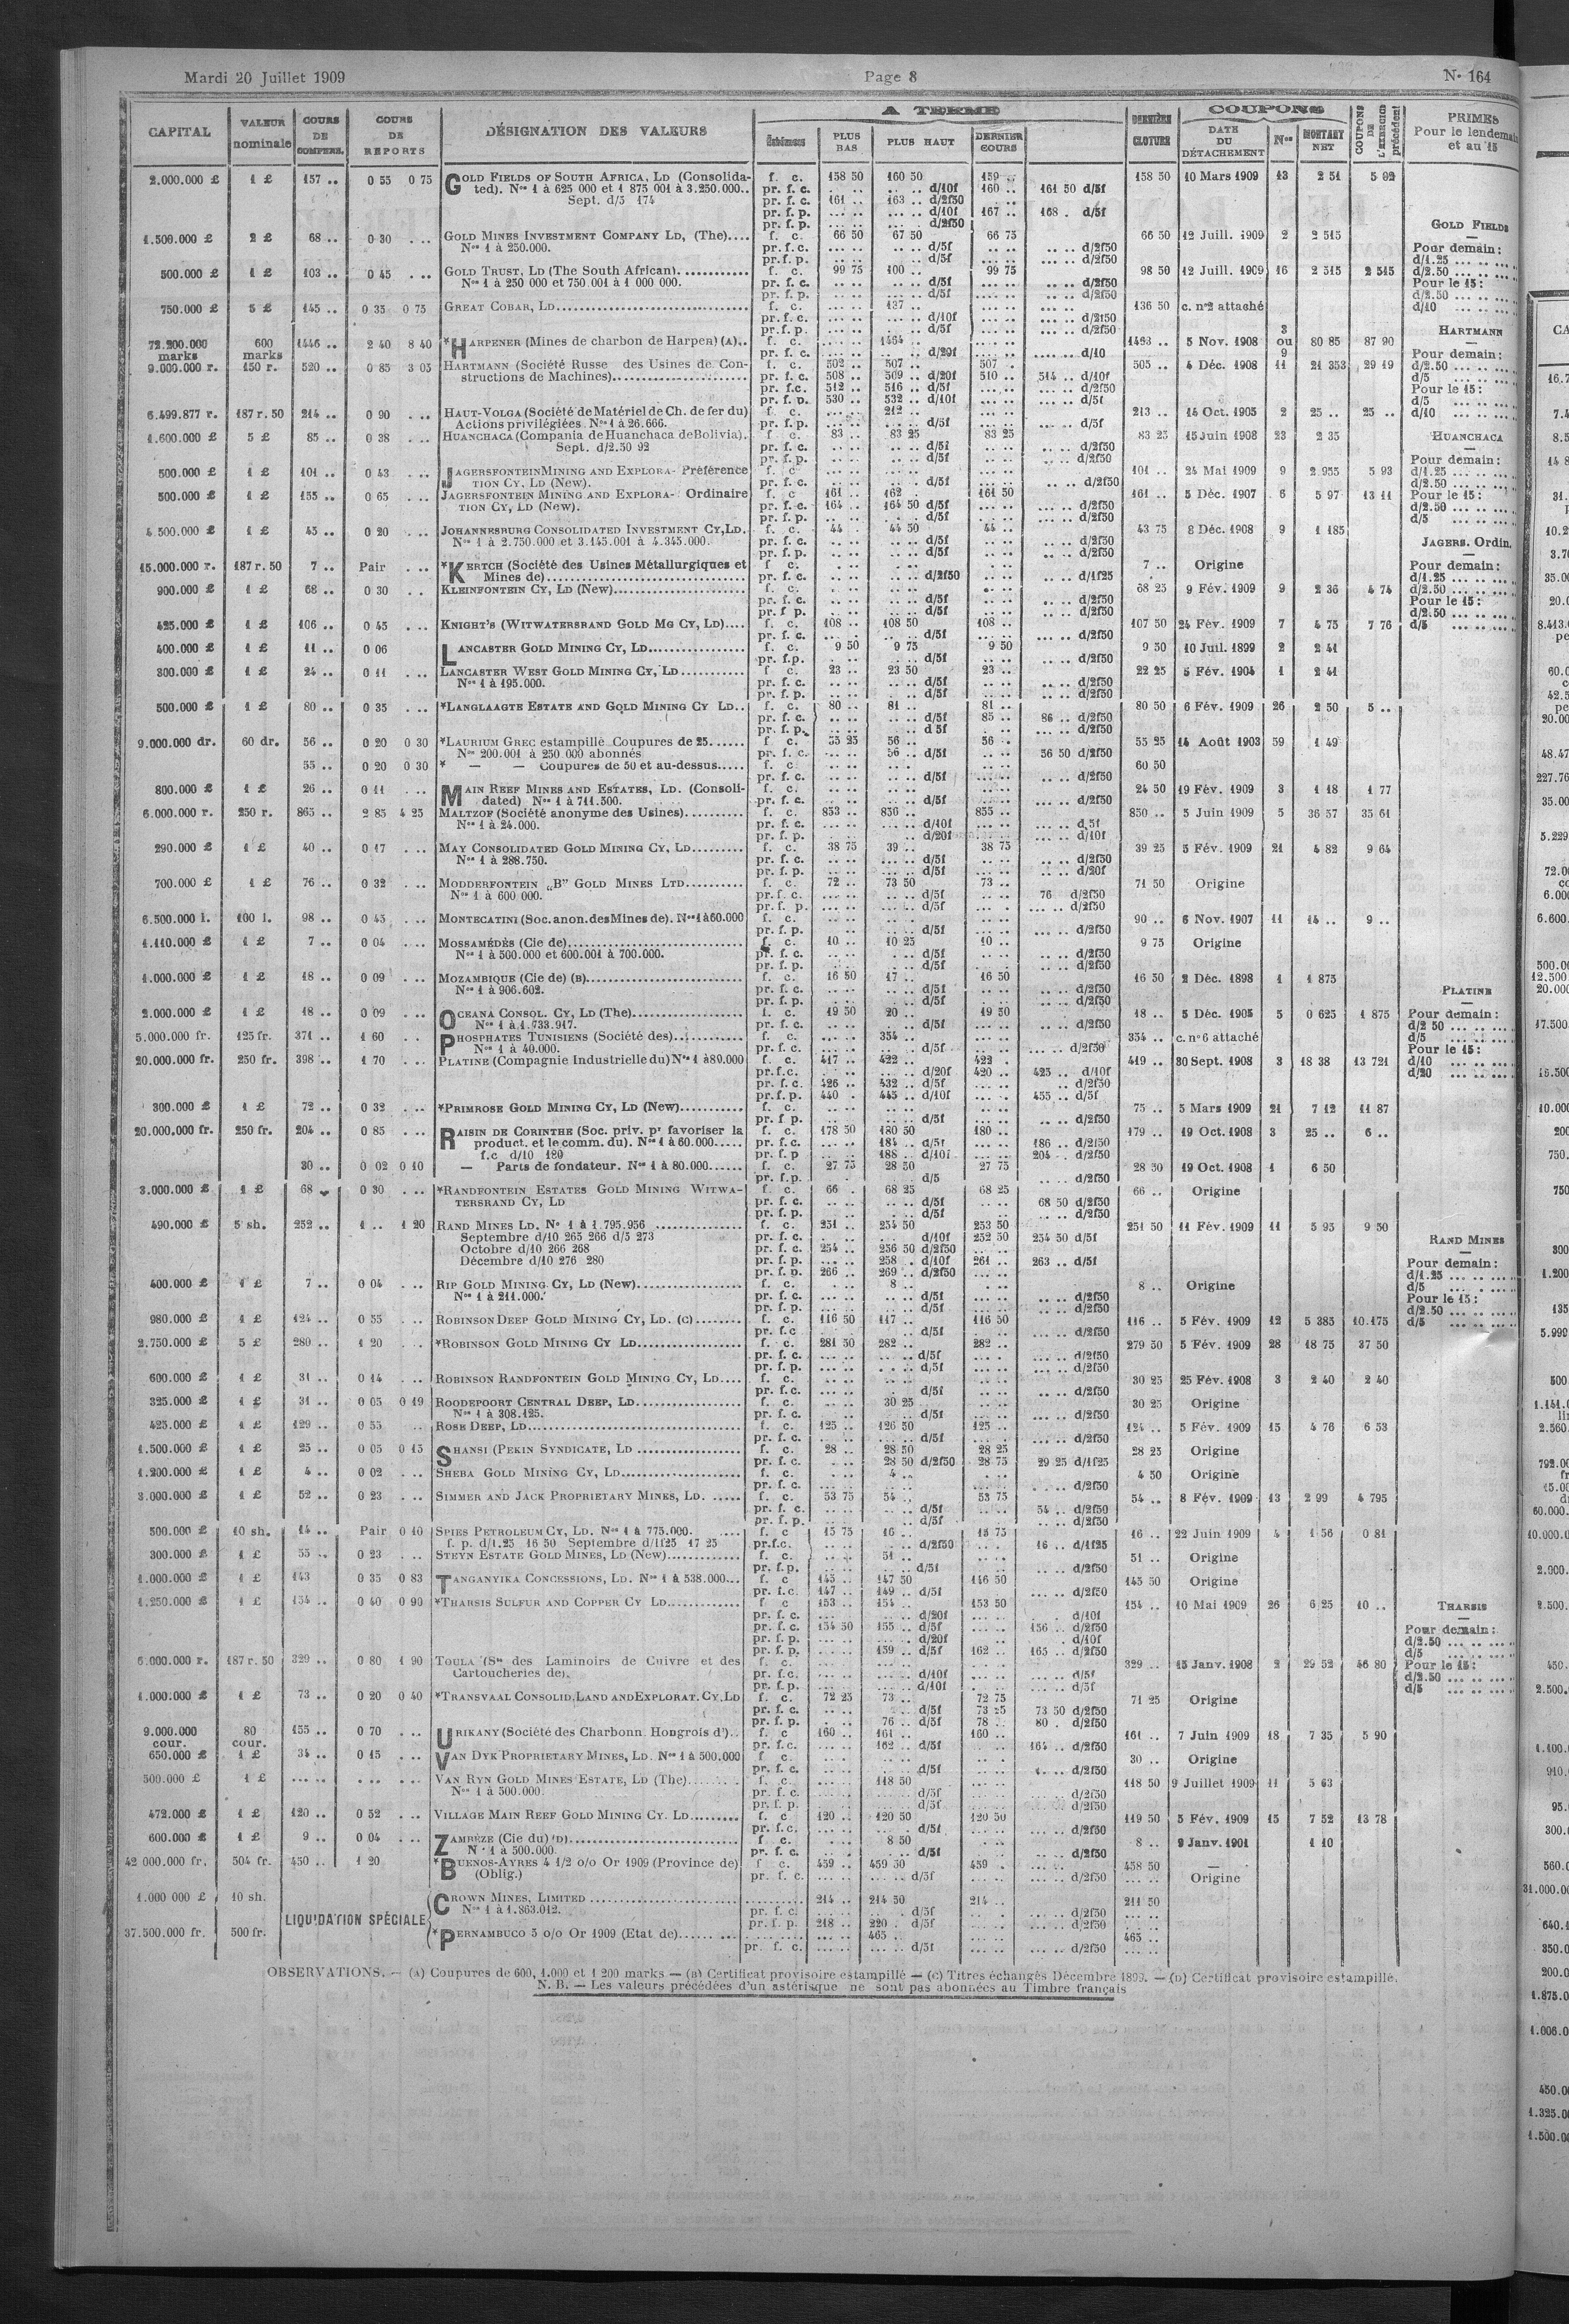 Mardi 20 Juillet 1909 Page 8 N° 164
CAPITAL VALEUR nominale COURS DE COMPENS. COURS DE REPORTS DÉSIGNATION DES VALEURS A TERME Échéances PLUS BAS PLUS HAUT DERNIER COURS DERNIÈRE CLOTURE COUPONS DATE DU DÉTACHEMENT Nos MONTANT NET COUPONS DE L'EXERCICE précédent PRIMES Pour le lendemain et au 15
2.000.000 £ 1 £ 157 .. 0 55 0 75 GOLD FIELDS OF SOUTH AFRICA, LD (Consolida- f. c. 158 50 160 50 159 .. 158 50 10 Mars 1909 13 2 51 5 92
ted). Nos 1 à 625 000 et 1 875 001 à 3.250.000.. pr. f. c. .. .. d/10f 160 .. 161 50 d/5f
Sept. d/5 174 pr. f. c. 161 .. 163 .. d/2f50
pr. f. p. d/10f 167 .. 168 . d/5f
pr. f. p. d/2f50
1.500.000 £ 2 £ 68 .. 0 30 ... GOLD MINES INVESTMENT COMPANY LD, (The).... f. c. 66 50 67 50 66 75 66 50 12 Juill. 1909 2 2 515
Nos 1 à 250.000. pr. f. c. d/5f d/2f50
pr. f. p. d/5f d/2f50
500.000 £ 1 £ 103 .. 0 45 ... GOLD TRUST, LD (The South African)............ f. c. 99 75 100 .. 99 75 98 50 12 Juill. 1909 16 2 515 2 515
Nos 1 à 250 000 et 750.001 à 1 000 000. pr. f. c. d/5f d/2f50
pr. f. p. d/5f d/2f50
750.000 £ 5 £ 145 .. 0 35 0 75 GREAT COBAR, LD............ f. c. 137 .. 136 50 c. n°2 attaché
pr. f. c. d/10f d/2f50
pr. f. p. d/5f d/2f50
72.200.000 marks 600 marks 1446 .. 2 40 8 40 *HARPENER (Mines de charbon de Harpen) (A).. f. c. 1464 .. 1493 .. 5 Nov. 1908 3 ou 9 80 85 87 90
pr. f. c. d/20f d/10
9.000.000 r. 150 r. 520 .. 0 85 3 05 HARTMANN (Société Russe des Usines de Con- f. c. 502 .. 507 .. 507 . 505 .. 4 Déc. 1908 11 21 353 29 19
structions de Machines)............ pr. f. c. 508 .. 509 .. d/20f 510 .. 514 .. d/10f
pr. f.c. 512 .. 516 .. d/5f d/2f50
pr. f. p. 530 .. 532 .. d/10f d/5f
6.499.877 r. 187 r. 50 214 .. 0 90 ... HAUT-VOLGA (Société de Matériel de Ch. de fer du) f. c. 212 .. 213 .. 14 Oct. 1905 2 25 .. 25 ..
Actions privilégiées. Nos 1 à 26.666. pr. f. p. d/5f d/5f
1.600.000 £ 5 £ 85 .. 0 38 ... HUANCHACA (Compania de Huanchaca de Bolivia). f. c. 83 .. 83 25 83 25 83 25 15 Juin 1908 23 2 35
Sept. d/2.50 92 pr. f. c. d/5f d/2f50
pr. f. p. d/5f d/2f50
500.000 £ 1 £ 101 .. 0 43 ... JAGERSFONTEIN MINING AND EXPLORA- Préférence f. c 101 .. 24 Mai 1909 9 2 955 5 93
TION CY, LD (New). pr. f. c. d/5f d/2f50
500.000 £ 1 £ 155 .. 0 65 ... JAGERSFONTEIN MINING AND EXPLORA- Ordinaire f. c 161 .. 162 . 161 50 161 .. 5 Déc. 1907 6 5 97 13 11
TION CY, LD (New). pr. f. c. 164 .. 164 50 d/5f d/2f50
pr. f. p. d/5f d/2f50
4.500.000 £ 1 £ 45 .. 0 20 ... JOHANNESBURG CONSOLIDATED INVESTMENT CY, LD. f. c. 44 .. 44 50 44 .. 43 75 8 Déc. 1908 9 1 185
Nos 1 à 2.750.000 et 3.145.001 à 4.345.000. pr. f. c. d/5f d/2f50
pr. f. p. d/5f d/2f50
15.000.000 r. 187 r. 50 7 .. Pair ... *KERTCH (Société des Usines Métallurgiques et f. c. 7 .. Origine
Mines de)............ pr. f. c. d/2f50 d/1f25
900.000 £ 1 £ 68 .. 0 30 .. KLEINFONTEIN CY, LD (New)............ f. c. 68 25 9 Fév. 1909 9 2 36 4 74
pr. f. c. d/5f d/2f50
pr. f p. d/5f d/2f50
425.000 £ 1 £ 106 .. 0 45 ... KNIGHT'S (WITWATERSRAND GOLD MG CY, LD).... f. c. 108 .. 108 50 108 .. 107 50 24 Fév. 1909 7 4 75 7 76
pr. f. c. d/5f d/2f50
400.000 £ 1 £ 11 .. 0 06 LANCASTER GOLD MINING CY, LD............ f. c. 9 50 9 75 9 50 9 50 10 Juil. 1899 2 2 41
pr. f.p. d/5f d/2f50
300.000 £ 1 £ 24 .. 0 11 ... LANCASTER WEST GOLD MINING CY, LD.......... f. c. 23 .. 23 50 23 .. 22 25 5 Fév. 1904 1 2 41
Nos 1 à 195.000. pr. f. c. d/5f d/2f50
pr. f. p. d/5f d/2f50
500.000 £ 1 £ 80 .. 0 35 ... *LANGLAAGTE ESTATE AND GOLD MINING CY LD.. f. c. 80 .. 81 .. 81 .. 80 50 6 Fév. 1909 26 2 50 5 ..
pr. f. c. d/5f 85 .. 86 .. d/2f50
pr. f. p. d 5f d/2f50
9.000.000 dr. 60 dr. 56 .. 0 20 0 30 *LAURIUM GREC estampillé Coupures de 25...... f. c. 55 25 56 .. 56 . 55 25 14 Août 1903 59 1 49
Nos 200.001 à 250 000 abonnés pr. f. c. 56 .. d/5f 56 50 d/2f50
55 .. 0 20 0 30 * — — Coupures de 50 et au-dessus..... f. c. 60 50
pr. f. c. d/5f d/2f50
800.000 £ 1 £ 26 .. 0 11 ... MAIN REEF MINES AND ESTATES, LD. (Consoli- f. c. 24 50 19 Fév. 1909 3 1 18 1 77
dated) Nos 1 à 711.500. pr. f. c. d/5f d/2f50
6.000.000 r. 250 r. 865 .. 2 85 4 25 MALTZOF (Société anonyme des Usines).......... f. c. 853 .. 856 .. 855 .. 850 .. 5 Juin 1909 5 36 57 35 61
Nos 1 à 24.000. pr. f. c. d/10f d,5f
pr. f. p. d/20f d/10f
290.000 £ 1 £ 40 .. 0 17 ... MAY CONSOLIDATED GOLD MINING CY, LD......... f. c. 38 75 39 .. 38 75 39 25 5 Fév. 1909 21 4 82 9 64
Nos 1 à 288.750. pr. f. c. d/5f d/2f50
pr. f. p. d/5f d/20f
700.000 £ 1 £ 76 .. 0 32 ... MODDERFONTEIN „B” GOLD MINES LTD.......... f. c. 72 .. 73 50 73 .. 71 50 Origine
Nos 1 à 600 000. pr. f. c. d/5f 76 d/2f50
pr. f. p. d/5f d/2f50
6.500.000 l. 100 l. 98 .. 0 45 ... MONTECATINI (Soc. anon. des Mines de). Nos 1 à 60.000 f. c. 90 .. 6 Nov. 1907 11 14 .. 9 ..
pr. f. p. d/5f d/2f50
1.110.000 £ 1 £ 7 .. 0 04 ... MOSSAMÉDÈS (Cie de)............ f. c. 10 .. 10 25 10 .. 9 75 Origine
Nos 1 à 500.000 et 600.001 à 700.000. pr. f. c. d/5f d/2f50
pr. f. p. d/5f d/2f50
1.000.000 £ 1 £ 18 .. 0 09 ... MOZAMBIQUE (Cie de) (B)............ f. c. 16 50 17 .. 16 50 16 50 2 Déc. 1898 1 1 875
Nos 1 à 906.602. pr. f. c. d/5f d/2f50
pr. f. p. d/5f d/2f50
2.000.000 £ 1 £ 18 .. 0 09 ... OCEANA CONSOL. CY, LD (The)............ f. c. 19 50 20 .. 19 50 18 .. 5 Déc. 1905 5 0 625 1 875
Nos 1 à 1.733.917. pr. f. c. d/5f d/2f50
5.000.000 fr. 125 fr. 371 .. 1 60 .. PHOSPHATES TUNISIENS (Société des)............ f. c. 354 .. 354 .. c. n°6 attaché
Nos 1 à 40.000. pr. f. c. d/5f d/2f50
20.000.000 fr. 250 fr. 398 .. 1 70 ... PLATINE (Compagnie Industrielle du) Nos 1 à 80.000 f. c. 417 .. 422 .. 422 . 419 .. 30 Sept. 1908 3 18 38 13 721
pr. f.c. d/20f 420 .. 425 .. d/10f
pr. f. c. 426 .. 432 .. d/5f d/2f50
pr. f. p. 440 . 445 .. d/10f 455 .. d/5f
300.000 £ 1 £ 72 .. 0 32 ... *PRIMROSE GOLD MINING CY, LD (New)........... f. c. 75 .. 5 Mars 1909 21 7 12 11 87
pr. f p. d/5f d/2f50
20.000.000 fr. 250 fr. 204 .. 0 85 ... RAISIN DE CORINTHE (Soc. priv. pr favoriser la f. c. 178 50 180 50 180 .. 179 .. 19 Oct. 1908 3 25 .. 6 ..
product. et le comm. du). Nos 1 à 60.000..... pr. f. c. 184 .. d/5f 186 .. d/2f50
f.c d/10 180 pr. f. p 188 .. d/10f 204 . d/2f50
30 .. 0 02 0 10 — Parts de fondateur. Nos 1 à 80.000...... f. c. 27 75 28 50 27 75 28 50 19 Oct. 1908 1 6 50
pr. f.p. d/5 d/2f50
3.000.000 £ 1 £ 68 .. 0 30 ... *RANDFONTEIN ESTATES GOLD MINING WITWA- f. c. 66 . 68 25 68 25 66 .. Origine
TERSRAND CY, LD pr. f. c. d/5f 68 50 d/2f50
pr. f. p. d/5f d/2f50
490.000 £ 5 sh. 252 .. 1 .. 1 20 RAND MINES LD. N° 1 à 1.795.956 ............ f. c. 251 .. 254 50 253 50 251 50 11 Fév. 1909 11 5 95 9 50
Septembre d/10 265 266 d/5 273 pr. f. c. d/10f 252 50 254 50 d/5f
Octobre d/10 266 268 pr. f. c. 254 .. 256 50 d/2f50
Décembre d/10 276 280 pr. f. p. 258 . d/10f 261 .. 263 .. d/5f
pr. f. p. 266 .. 269 .. d/2f50
400.000 £ 1 £ 7 .. 0 04 ... RIP GOLD MINING CY, LD (New)............ f. c. 8 .. 8 .. Origine
Nos 1 à 211.000. pr. f. c. d/5f d/2f50
pr. f. p. d/5f d/2f50
980.000 £ 1 £ 124 .. 0 55 ... ROBINSON DEEP GOLD MINING CY, LD. (C)........ f. c. 116 50 117 .. 116 50 116 .. 5 Fév. 1909 12 5 385 10.175
pr. f.c d/5f d/2f50
2.750.000 £ 5 £ 280 .. 1 20 *ROBINSON GOLD MINING CY LD............ f. c. 281 50 282 .. 282 .. 279 50 5 Fév. 1909 28 18 75 37 50
pr. f. c. d/5f d/2f50
pr. f. p. d/5f d/2f50
600.000 £ 1 £ 31 .. 0 14 ... ROBINSON RANDFONTEIN GOLD MINING CY, LD.... f. c. 30 25 25 Fév. 1908 3 2 40 2 40
pr. f.c. d/5f d/2f50
325.000 £ 1 £ 31 .. 0 05 0 19 ROODEPOORT CENTRAL DEEP, LD............ f. c. 30 25 30 25 Origine
Nos 1 à 308.125. pr. f. c. d/5f d/2f50
425.000 £ 1 £ 129 .. 0 55 .. ROSE DEEP, LD............ f. c. 125 .. 126 50 125 .. 124 .. 5 Fév. 1909 15 4 76 6 53
pr. f. c. d/5f d/2f50
1.500.000 £ 1 £ 25 .. 0 05 0 15 SHANSI (PEKIN SYNDICATE, LD ............ f. c. 28 .. 28 50 28 25 28 25 Origine
pr. f. c. 28 50 d/2f50 28 75 29 25 d/1f25
1.200.000 £ 1 £ 4 .. 0 02 ... SHEBA GOLD MINING CY, LD............ f. c. 4 .. 4 50 Origine
pr. f. c. d/2f50
3.000.000 £ 1 £ 52 .. 0 23 ... SIMMER AND JACK PROPRIETARY MINES, LD. ..... f. c. 53 75 54 . 53 75 54 .. 8 Fév. 1909 13 2 99 4 795
pr. f. c. d/5f 54 .. d/2f50
pr. f. p. d/5f d/2f50
500.000 £ 10 sh. 14 .. Pair 0 10 SPIES PETROLEUM CY, LD. Nos 1 à 775.000. .... f. c 15 75 16 .. 15 75 16 .. 22 Juin 1909 4 1 56 0 81
f. p. d/1.25 16 50 Septembre d/1f25 17 25 pr.f.c. d/2f50 16 .. d/1f25
300.000 £ 1 £ 55 .. 0 23 ... STEYN ESTATE GOLD MINES, LD (New)............ f. c. 51 .. 51 .. Origine
pr. f.p. d/5f d/2f50
1.000.000 £ 1 £ 143 0 35 0 83 TANGANYIKA CONCESSIONS, LD. Nos 1 à 538.000... f. c 145 .. 147 50 146 50 145 50 Origine
pr. f.c. 147 .. 149 .. d/5f d/2f50
1.250.000 £ 1 £ 154 .. 0 40 0 90 *THARSIS SULFUR AND COPPER CY LD............ f. c 153 .. 154 .. 153 50 154 .. 10 Mai 1909 26 6 25 10 ..
pr. f. c. d/20f d/10f
pr. f. c. 154 50 155 .. d/5f 156 .. d/2f50
pr. f. p. d/20f d/10f
pr. f. p. 159 .. d/5f 162 .. 165 .. d/2f50
6.000.000 r. 187 r. 50 329 .. 0 80 1 90 TOULA (Sté des Laminoirs de Cuivre et des f. c. 329 .. 15 Janv. 1908 2 29 52 46 80
Cartoucheries de). pr. f.c. d/10f d/5f
pr. f. p. d/10f d/5f
1.000.000 £ 1 £ 73 .. 0 20 0 40 *TRANSVAAL CONSOLID, LAND AND EXPLORAT. CY, LD f. c. 72 25 73 .. 72 75 71 25 Origine
pr. f. c. d/5f 73 25 73 50 d/2f50
pr. f. p. 76 .. d/5f 78 .. 80 . d/2f50
9.000.000 cour. 80 cour. 155 .. 0 70 ... URIKANY (Société des Charbonn. Hongrois d').. f. c 160 .. 161 .. 160 .. 161 .. 7 Juin 1909 18 7 35 5 90
pr. f.c. 162 .. d/5f 164 .. d/2f50
650.000 £ 1 £ 34 .. 0 15 ... VAN DYK PROPRIETARY MINES, LD. Nos 1 à 500.000 f c. 30 .. Origine
pr. f. c. d/5f d/2f50
500.000 £ 1 £ ..... .. .. ... VAN RYN GOLD MINES ESTATE, LD (The)........ f. c. 118 50 118 50 9 Juillet 1909 11 5 63
Nos 1 à 500.000. pr. f. c. d/5f d/2f50
pr. f. p. d/5f d/2f50
472.000 £ 1 £ 120 .. 0 52 ... VILLAGE MAIN REEF GOLD MINING CY. LD......... f. c 120 .. 120 50 120 50 119 50 5 Fév. 1909 15 7 52 13 78
pr. f.c. d/5f d/2f50
600.000 £ 1 £ 9 .. 0 04 ... ZAMBÈZE (Cie du) (D)............ f c. 8 50 8 .. 9 Janv. 1901 1 10
N° 1 à 500.000. pr. f. c. d/5f d/2f50
42 000.000 fr. 504 fr. 450 .. 1 20 *BUENOS-AYRES 4 1/2 o/o Or 1909 (Province de) f c. 459 .. 459 50 459 . 458 50 —
(Oblig.) pr. f. c. d/5f d/2f50 Origine
1.000 000 £ 10 sh. CROWN MINES, LIMITED ............ 214 .. 214 50 214 .. 211 50
Nos 1 à 1.863.012. pr. f. c. d/5f d/2f50
LIQUIDATION SPÉCIALE pr. f. p. 218 .. 220 . d/5f d/2f50
37.500.000 fr. 500 fr. *PERNAMBUCO 5 o/o Or 1909 (Etat de)............ 465 .. 465 ..
pr. f. c. d/5f d/2f50
GOLD FIELDS
Pour demain:
d/1.25 ... .. ... ..
d/2.50 ... .. ... ..
Pour le 15:
d/2.50 ... .. ... ..
d/10 ... .. ... ..
HARTMANN
Pour demain:
d/2.50 ... .. ... ..
d/5 ... .. ... ..
Pour le 15:
d/5 ... .. ... ..
d/10 ... .. ... ..
HUANCHACA
Pour demain:
d/1.25 ... .. ... ..
d/2.50 ... .. ... ..
Pour le 15:
d/2.50 ... .. ... ..
d/5 ... .. ... ..
JAGERS. Ordin.
Pour demain:
d/1.25 ... .. ... ..
d/2.50 ... .. ... ..
Pour le 15:
d/2.50 ... .. ... ..
d/5 ... .. ... ..
PLATINE
Pour demain:
d/2 50 ... .. ... ..
d/5 ... .. ... ..
Pour le 15:
d/10 ... .. ... ..
d/20 ... .. ... ..
RAND MINES
Pour demain:
d/1.25 ... .. ... ..
d/5 ... .. ... ..
Pour le 15:
d/2.50 ... .. ... ..
d/5 ... .. ... ..
THARSIS
Pour demain:
d/2.50 ... .. ... ..
d/5 ... .. ... ..
Pour le 15:
d/2.50 ... .. ... ..
d/5 ... .. ... ..
OBSERVATIONS. — (A) Coupures de 600, 1.000 et 1 200 marks — (B) Certificat provisoire estampillé — (C) Titres échangés Décembre 1899. — (D) Certificat provisoire estampillé.
N. B. — Les valeurs précédées d'un astérisque ne sont pas abonnées au Timbre français